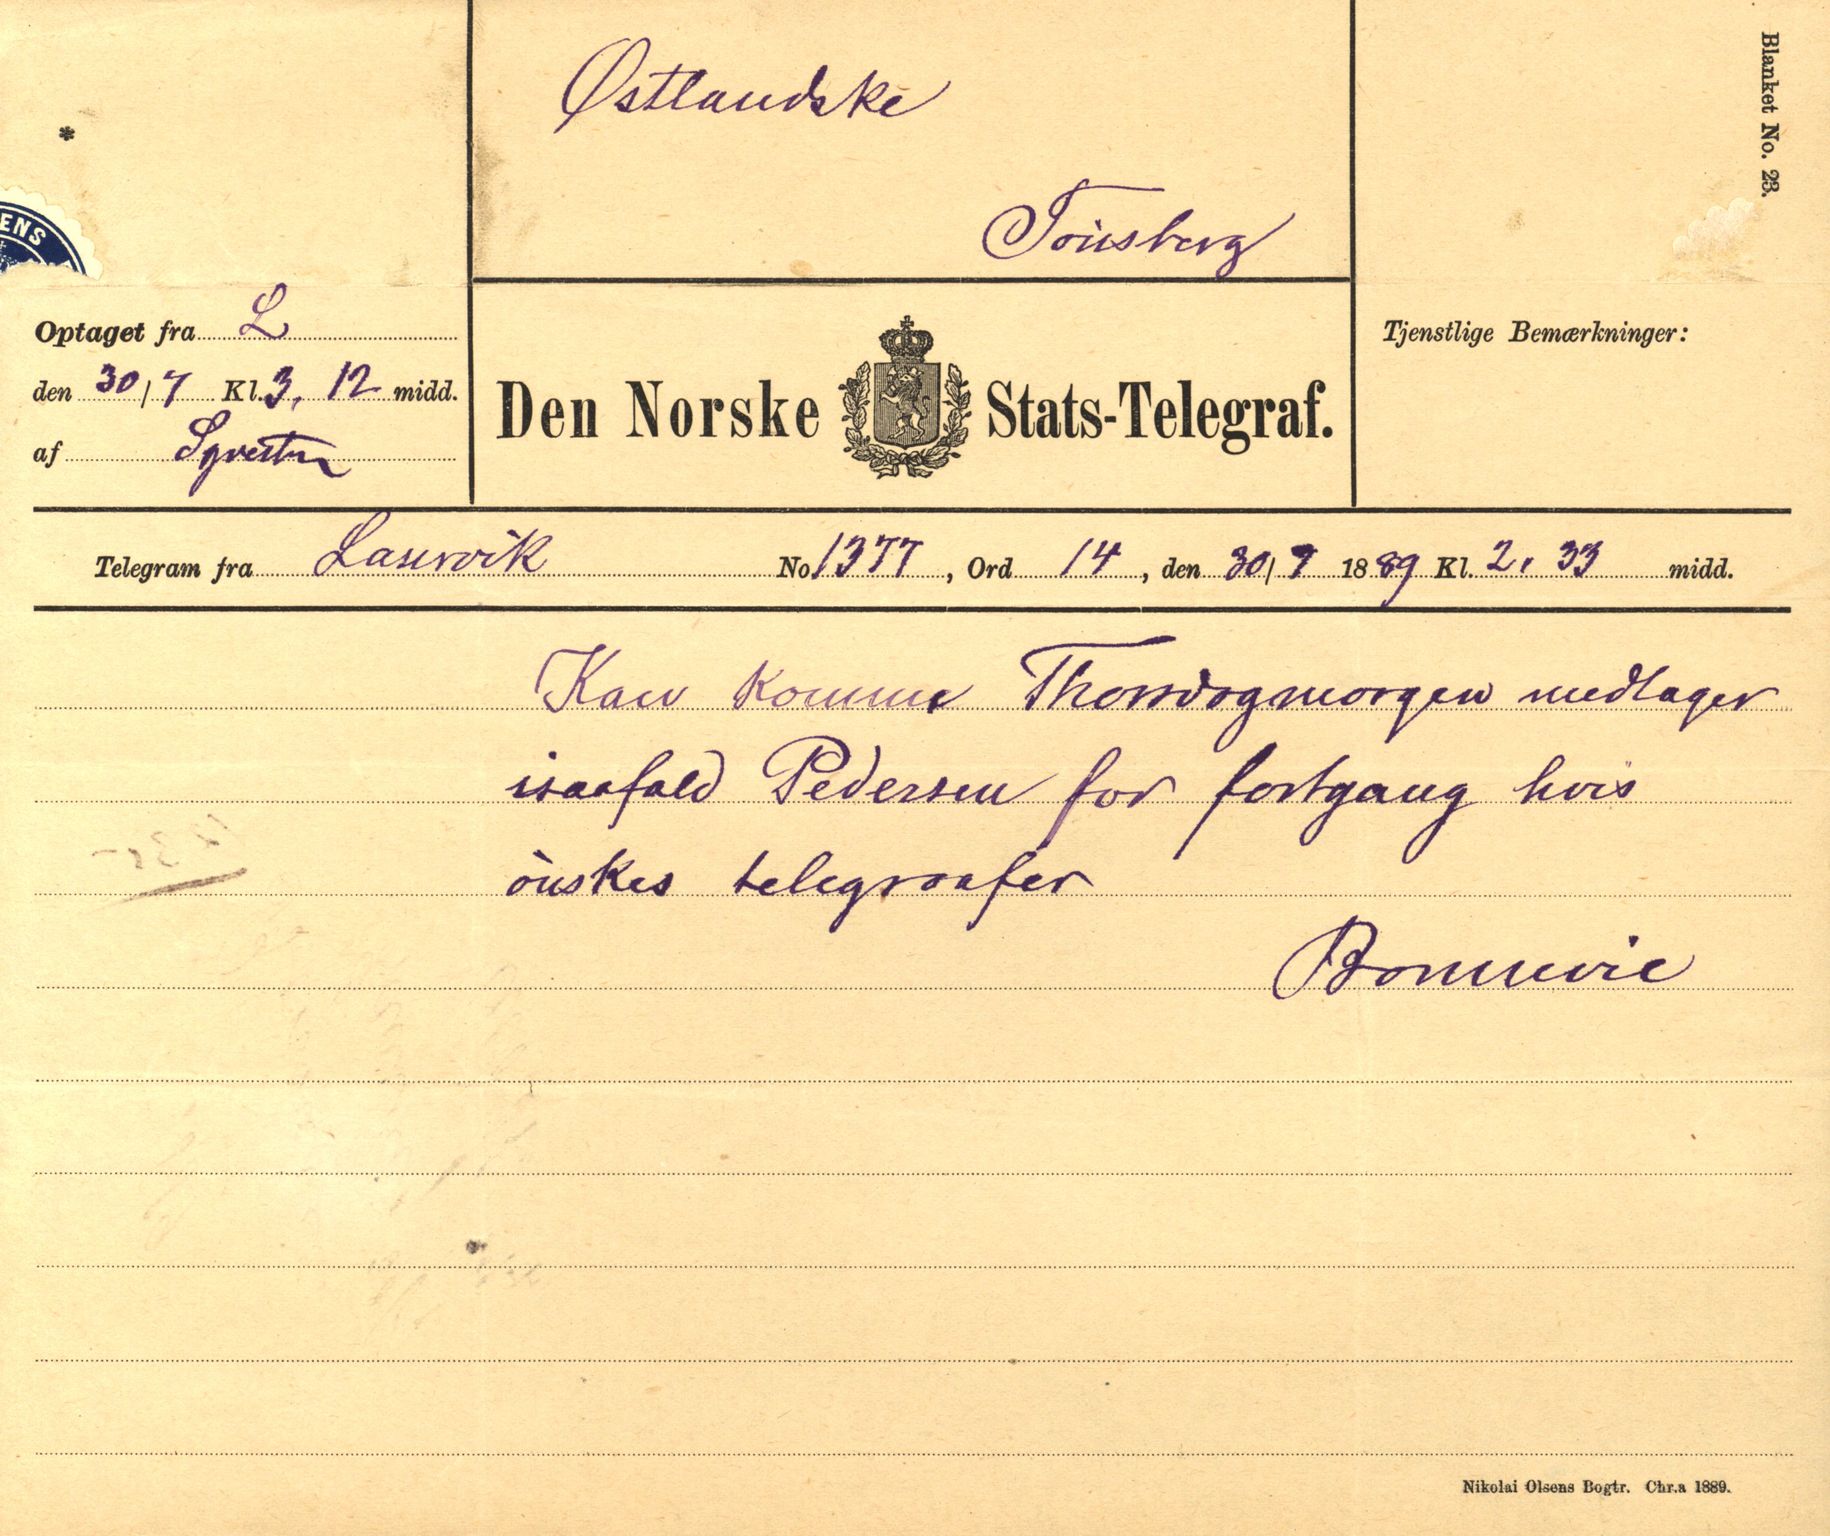 Østlandske
Tönsberg
Blanket No. 23.
ENS
Optaget fra L
den 30/7 Kl. 3, 12 midd.
af
Den Norske Stats-Telegraf.
Tjenstlige Bemærkninger:
Telegram fra Laurvik No 1377, Ord 14, den 30/7 1889 Kl. 2, 33 midd.
Kan komme Thorsdagmorgen medtager
isaafald Pedersen for fortgang hvis
önskes telegraafer
Bonnevie
Nikolai Olsens Bogtr. Chr.a 1889.